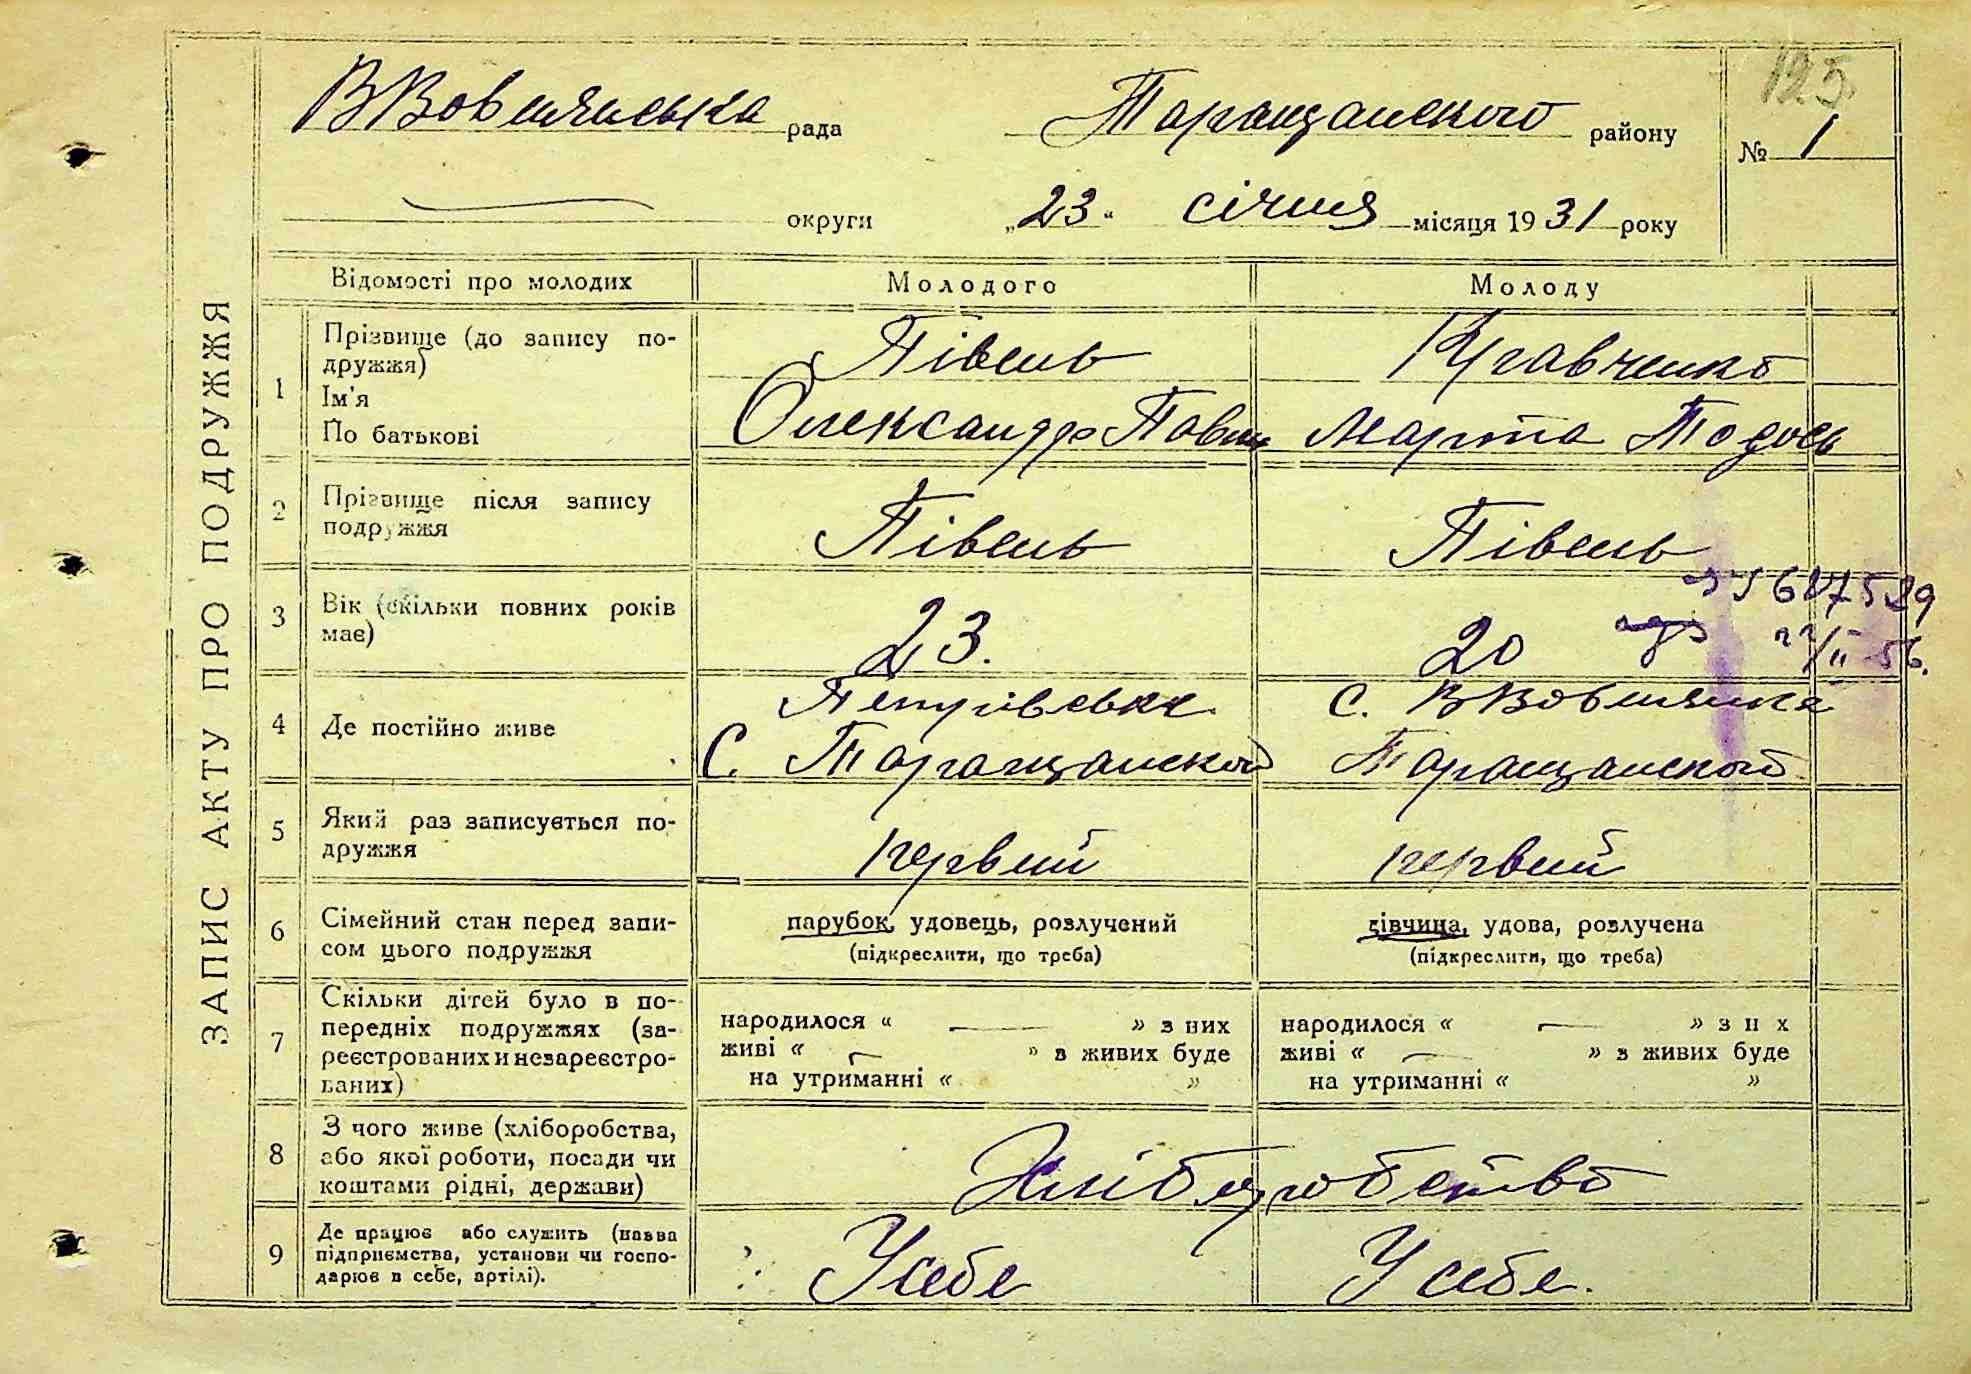 125.
ВВовнянська рада Таращанского району № 1
округи „23“ січня місяця 1931 року
ЗАПИС АКТУ ПРО ПОДРУЖЖЯ
Відомості про молодих Молодого Молоду
1 Прізвище (до запису по-
дружжя) Півень Кравченко
Ім'я
По батькові Олександр Павл Марта Тодось
2 Прізвище після запису
подружжя Півень Півень
3 Вік (скільки повних років
має) 23. 20
22/II 56.
4 Де постійно живе Петрівськ С. Таращанской с. ВВовнянка Таращанской
5 Який раз записується по-
дружжя первий первий
6 Сімейний стан перед запи-
сом цього подружжя
парубок, удовець, розлучений
(підкреслити, що треба)
дівчина, удова, розлучена
(підкреслити, що треба)
7 Скільки дітей було в по-
передніх подружжях (за-
реєстрованих и незареєстро-
ваних)
народилося “ — ” з них
живі “ — ” в живих буде
на утриманні “ ”
народилося “ — ” з н х
живі “ — ” з живих буде
на утриманні “ ”
8 З чого живе (хліборобства,
або якої роботи, посади чи
коштами рідні, держави) Хліборобство
9 Де працює або служить (назва
підприємства, установи чи госпо-
дарює в себе, артілі). У себе У себе.